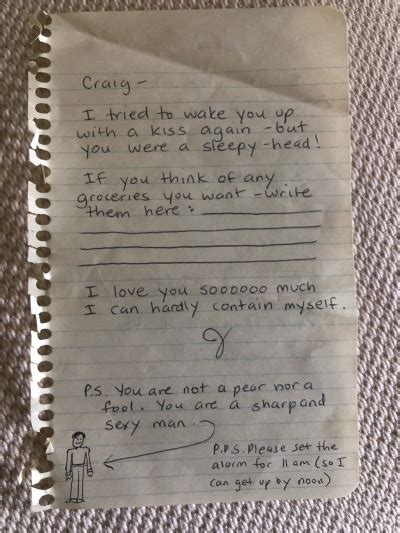 Craig -
I tried to wake you up
with a kiss again - but
you were a sleepy-head!
If you think of any
groceries you want - write
them here :
I love you soooooo much
I can hardly contain myself.
J
P.S. You are not a pear nor a
fool. You are a sharp and
sexy man.
P.P.S. Please set the
alarm for 11 am (so I
can get up by noon)